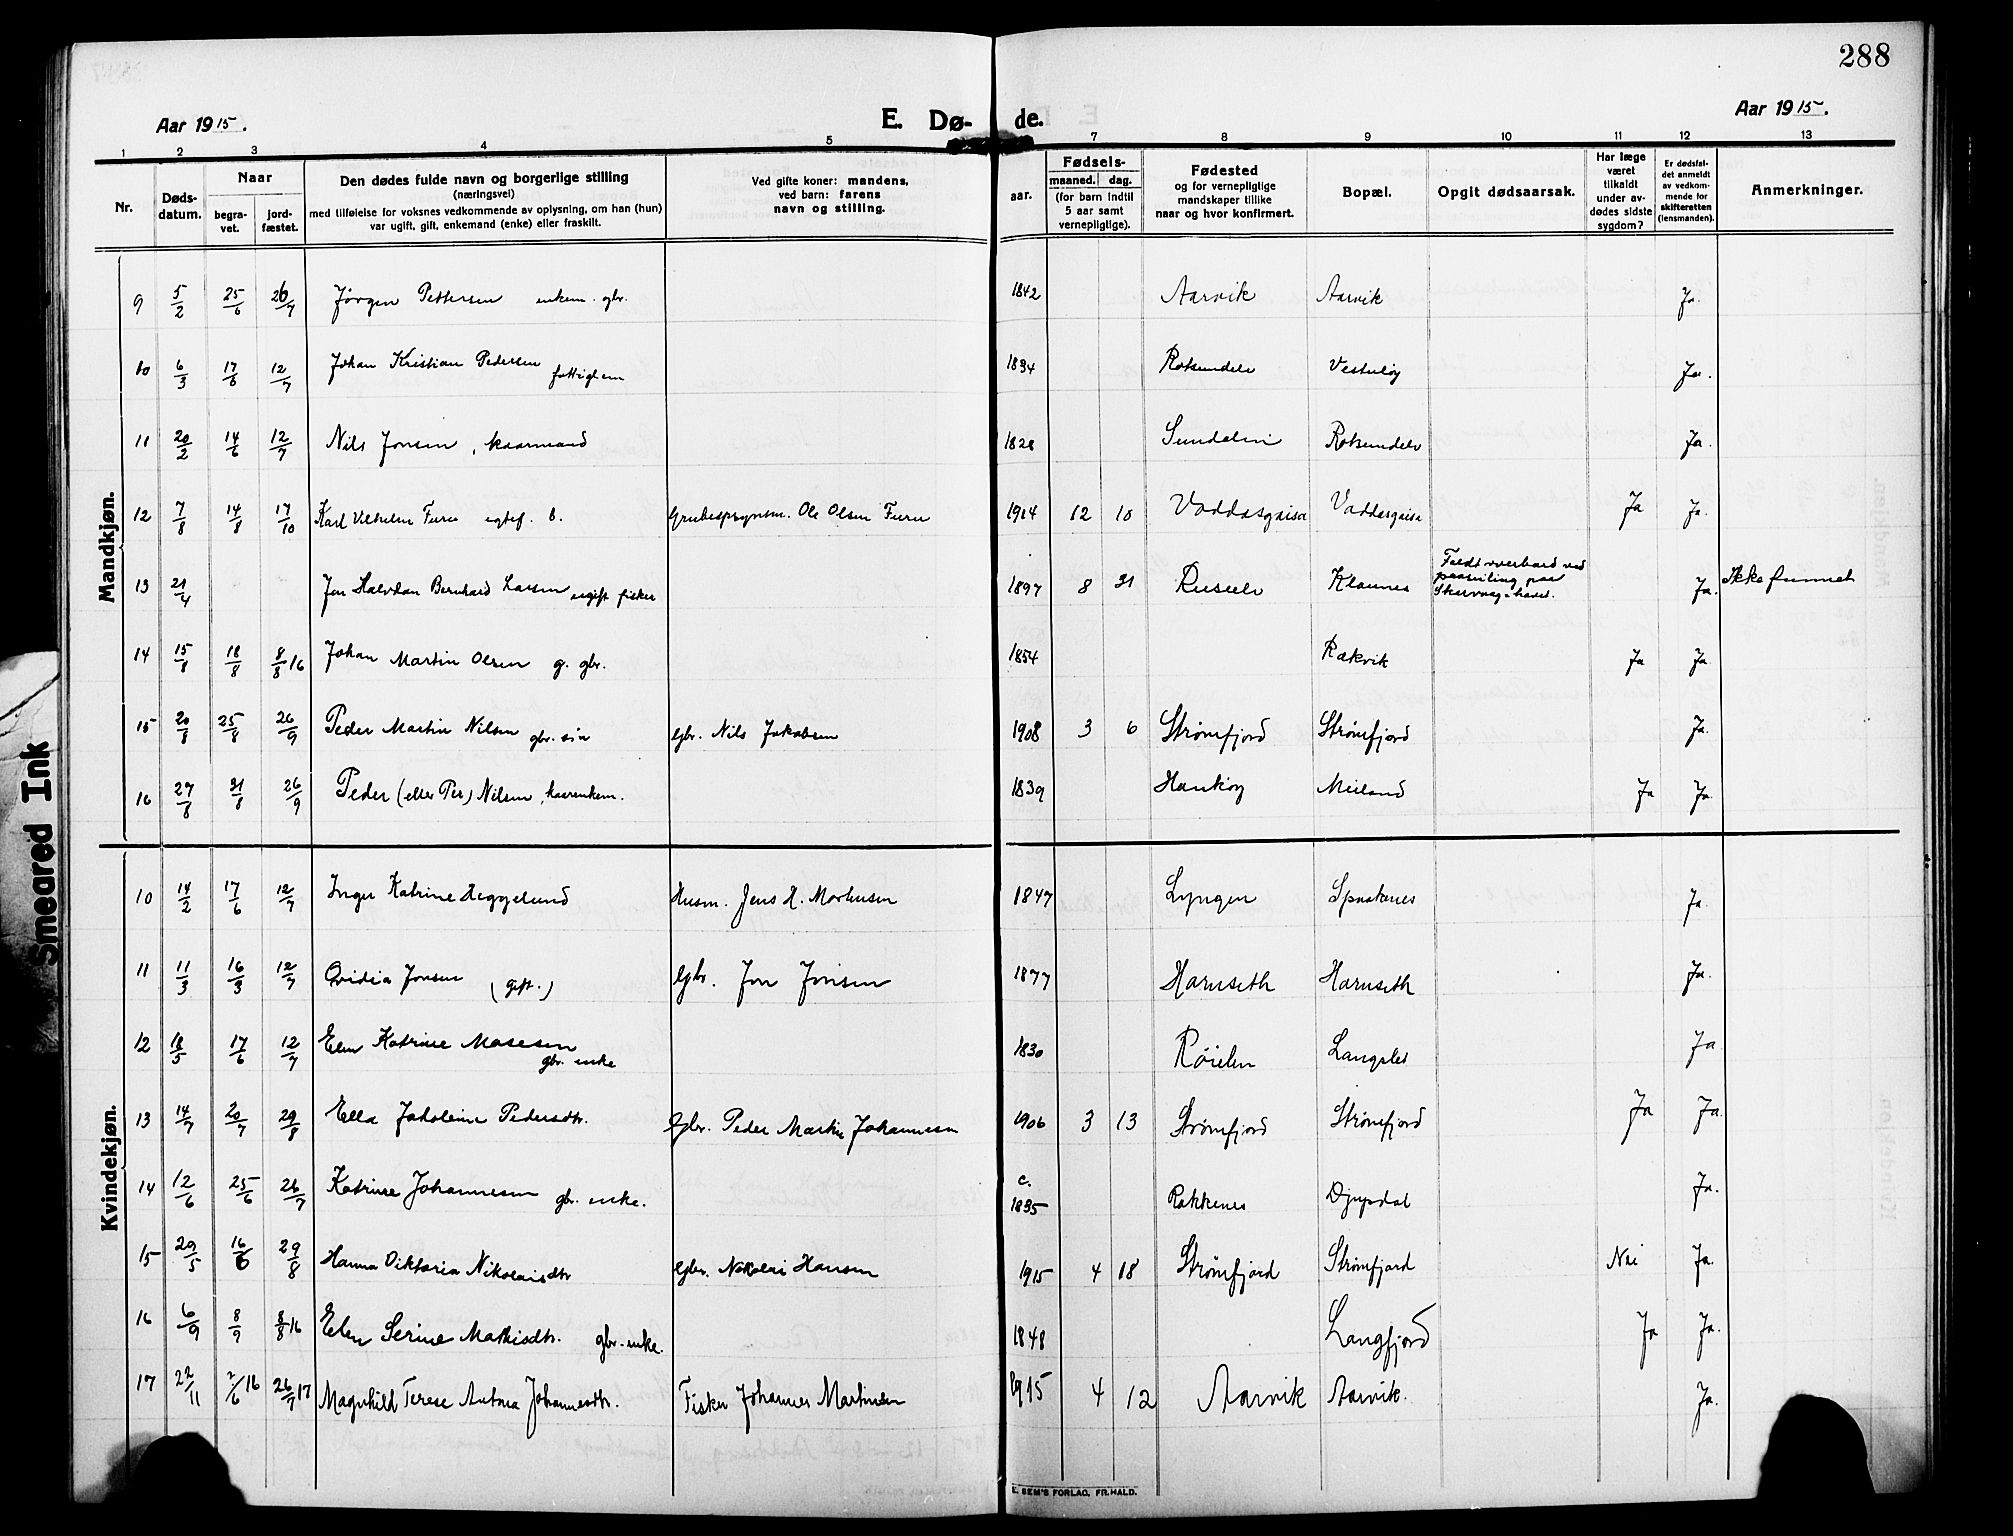 288
Aar 1915.
E. Dø- de.
Aar 1915.
1 2 3 4 5 7 8 9 10 11 12 13
Nr.
Døds-
datum.
Naar
begra-
vet.
jord-
fæstet.
Den dødes fulde navn og borgerlige stilling
(næringsvei)
med tilføielse for voksnes vedkommende av oplysning, om han (hun)
var ugift, gift, enkemand (enke) eller fraskilt.
Ved gifte koner: mandens,
ved barn: farens
navn og stilling.
Fødsels-
aar.
maaned. dag.
(for barn indtil
5 aar samt
vernepligtige).
Fødested
og for vernepligtige
mandskaper tillike
naar og hvor konfirmert.
Bopæl.
Opgit dødsaarsak.
Har læge
været
tilkaldt
under av-
dødes sidste
sygdom?
Er dødsfal-
det anmeldt
av vedkom-
mende for
skifteretten
(lensmanden).
Anmerkninger.
Mandkjøn.
9 5/2 25/6 26/7 Jørgen Pettersen enkem. gbr. 1842 Aarvik Aarvik Ja.
10 6/3 17/6 12/7 Johan Kristian Pedersen fattiglem 1834 Rotsundelv Ja.
11 20/2 14/6 12/7 Nils Jonsen, kaarmand 1828 Rotsundelv Ja.
12 7/8 14/8 17/10 Karl Vilhelm Furu egtef. b. Ole Olsen Furu 1914 12 10 Vaddasgaisa Vaddasgaisa Ja Ja.
13 21/4 Jon Halvdan Bernhard Larsen ugift fisker 1897 8 31 Klaunes Faldt overbord ved
paaseiling paa
Ja. Ikke funnet
14 15/8 18/8 8/8 16 Johan Martin Olsen g. gbr. 1854 Rakvik Ja Ja.
15 20/8 25/8 26/9 Peder Martin Nilsen gbr. søn gbr. Nils Jakobsen 1908 3 6 Strømfjord Strømfjord Ja.
16 27/8 31/8 26/9 Peder (eller Per) Nilsen, kaarenkem. 1839 Haukøy Meiland Ja Ja.
Kvindekjøn.
10 14/2 17/6 12/7 Inger Katrine Heggelund Husm. Jens H. Mortensen 1847 Lyngen Spaakenes Ja.
11 11/3 16/3 12/7 Ovidia Jonsen (gift.) gbr. Jon Jonsen 1877 Hamnseth Hamnseth Ja.
12 18/5 17/6 12/7 Elen Katrine Mosesen gbr. enke 1830 Røielen Langslet Ja.
13 14/7 20/7 29/8 Ella Jakobine Pedersdtr. gbr. Peder Martin Johannesen 1906 3 13 Strømfjord Strømfjord Ja Ja.
14 12/6 25/6 26/7 Katrine Johannesen gbr. enke. c. 1835 Rakkenes Djupdal Ja.
15 29/5 16/6 29/8 Hanna Viktoria Nikolaisdtr gbr. Nikolai Hansen 1915 4 18 Strømfjord Strømfjord Nei Ja.
16 6/9 8/9 8/8 16 Elen Serine Mathisdtr. gbr. enke. 1848 Langfjord Ja Ja.
17 22/11 2/6 16 26/7 17 Magnhild Terese Antona Johannesdtr. Fisker Johannes Martinsen 1915 4 12 Aarvik Aarvik. Ja.
E. SEM'S FORLAG, FR.HALD.
Smeared Ink